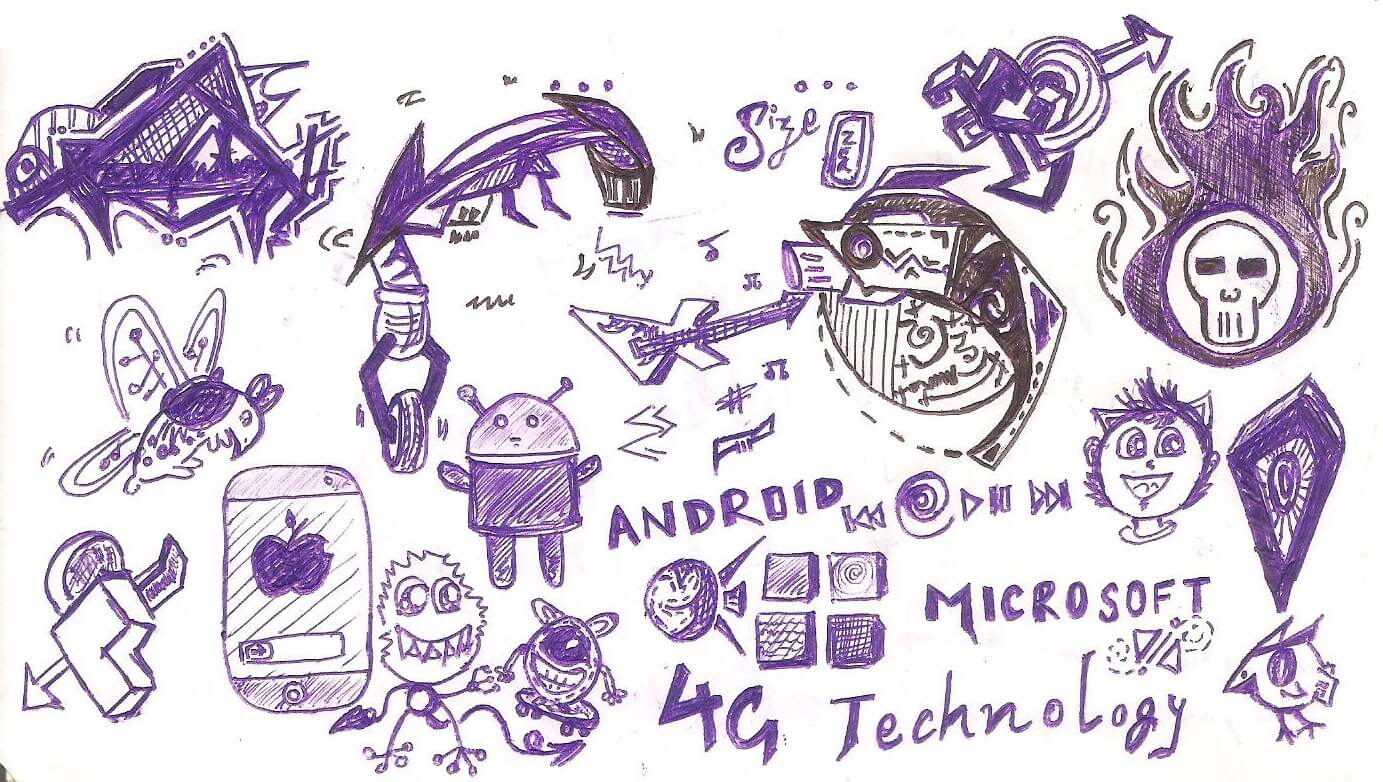 Size
ANDROID
MICROSOFT
4G Technology